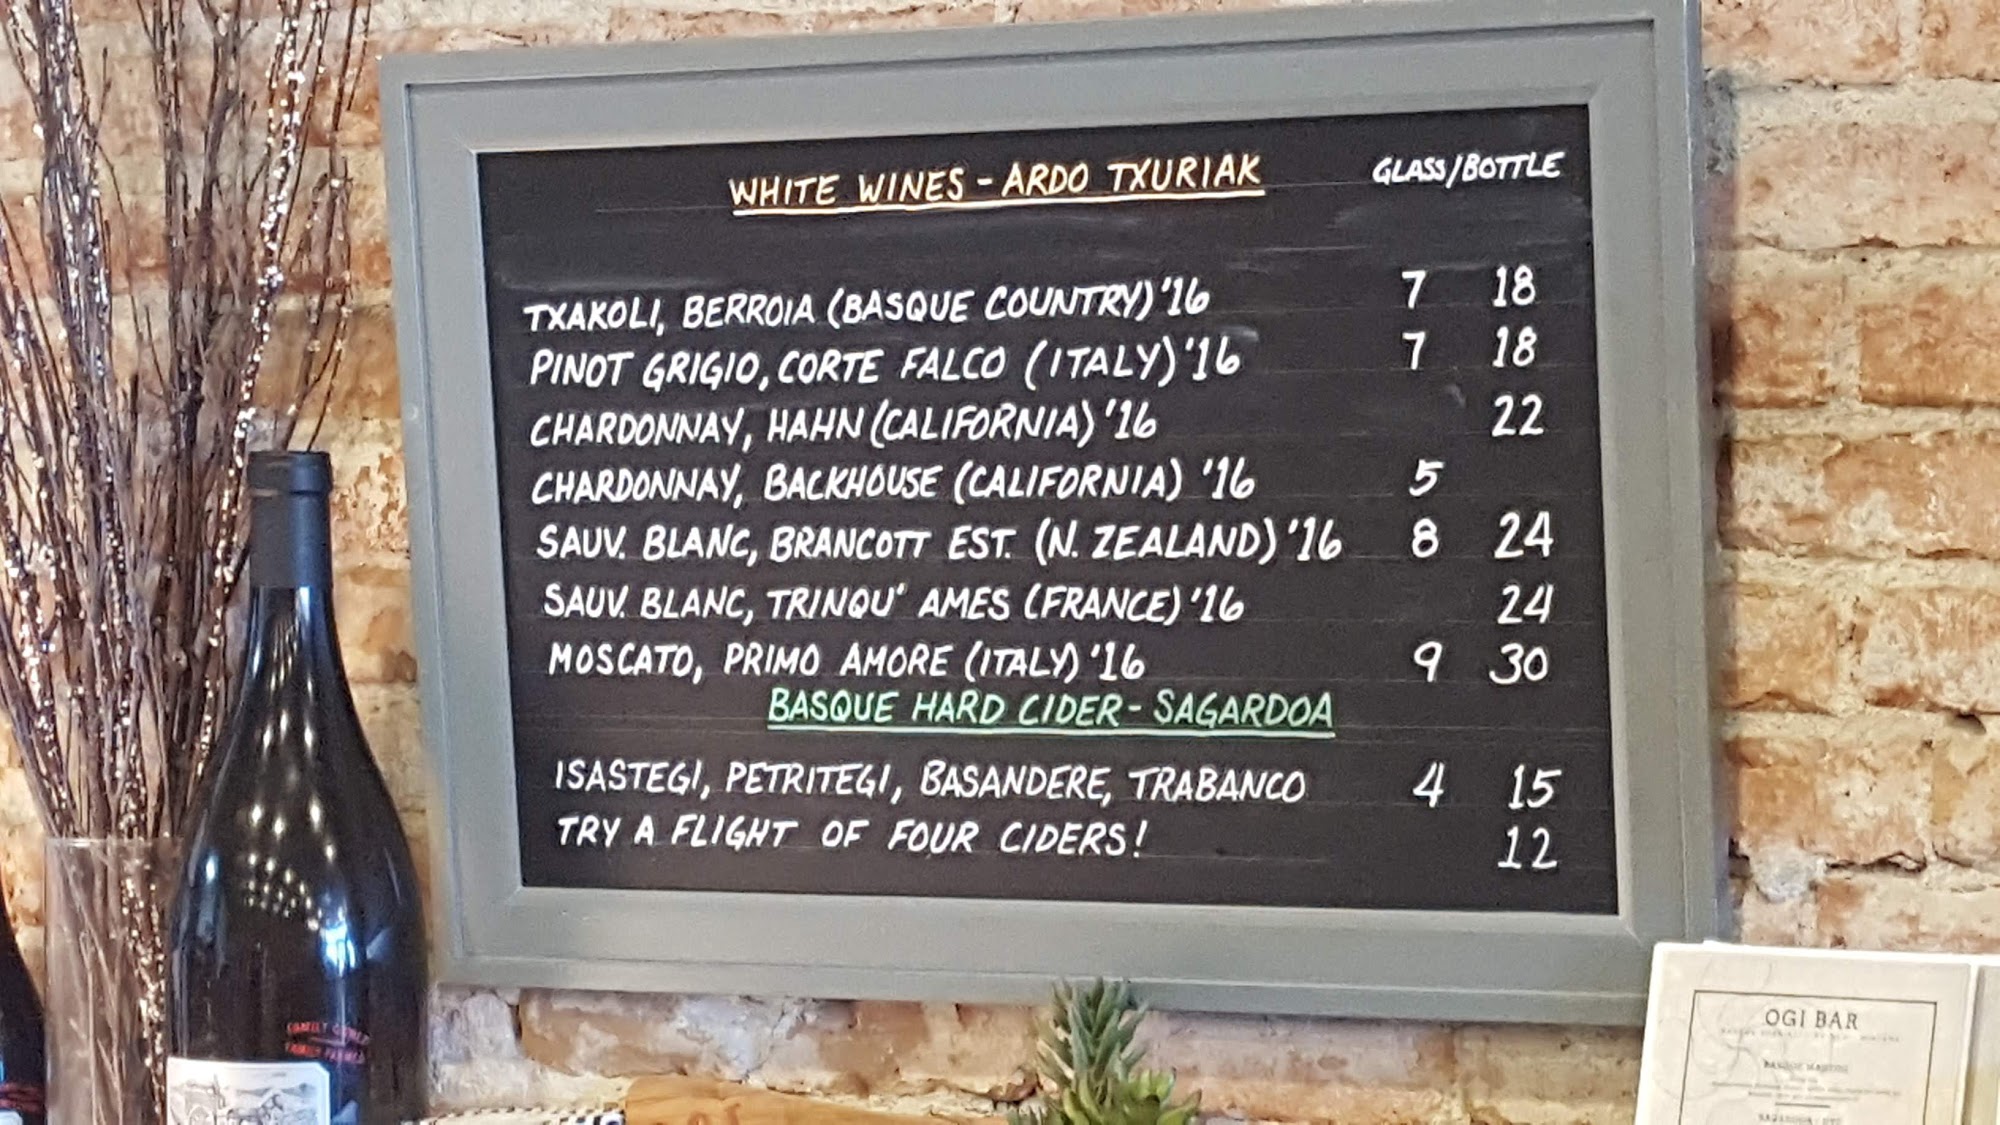 WHITE WINES - ARDO TXURIAK GLASS/BOTTLE
TXAKOLI, BERROIA (BASQUE COUNTRY) '16 7 18
PINOT GRIGIO, CORTE FALCO (ITALY) '16 7 18
CHARDONNAY, HAHN (CALIFORNIA) '16 22
CHARDONNAY, BACKHOUSE (CALIFORNIA) '16 5
SAUV. BLANC, BRANCOTT EST. (N. ZEALAND) '16 8 24
SAUV. BLANC, TRINQU' AMES (FRANCE) '16 24
MOSCATO, PRIMO AMORE (ITALY) '16 9 30
BASQUE HARD CIDER - SAGARDOA
ISASTEGI, PETRITEGI, BASANDERE, TRABANCO 4 15
TRY A FLIGHT OF FOUR CIDERS! 12
FAMILY OWNED
FAMILY FARMED
OGI BAR
BASQUE MARTINI